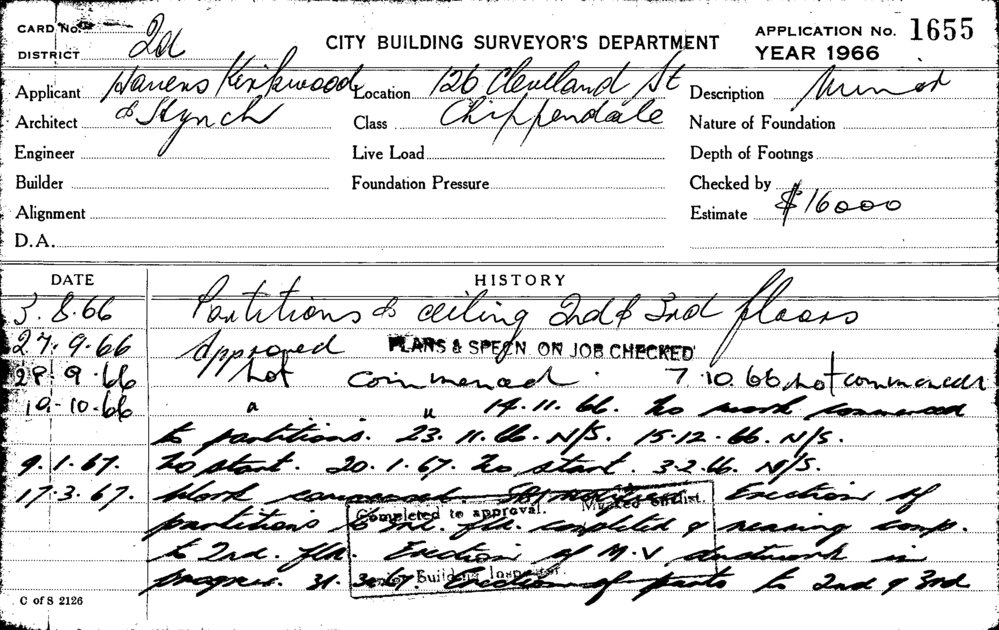 CARD No.
DISTRICT 2d
CITY BUILDING SURVEYOR'S DEPARTMENT
APPLICATION No. 1655
YEAR 1966
Applicant Havens Kirkwood
Location 126 Cleveland St
Description Minor
Architect & Hynch
Class Chippendale
Nature of Foundation
Engineer
Live Load
Depth of Footings
Builder
Foundation Pressure
Checked by
Alignment
Estimate $16000
D.A.
DATE HISTORY
3.8.66 Partitions & ceiling 2nd & 3rd floors
27.9.66 Approved PLANS & SPEC'N ON JOB CHECKED
28.9.66 not commenced. 7.10.66 not commenced
19-10-66 " " 14.11.66. No work commenced
to partitions. 23.11.66. N/S. 15.12.66. N/S.
9.1.67. No start. 20.1.67. No start. 3.2.66. N/S.
17.3.67. Work commenced. Erection of
partitions to 3rd. flr. completed & nearing comp.
to 2nd. flr. Erection of M.V ductwork in
progress. 31.3.67. Erection of parts to 2nd & 3rd
Completed to approval. Marked off list.
Building Inspector.
C of S 2126